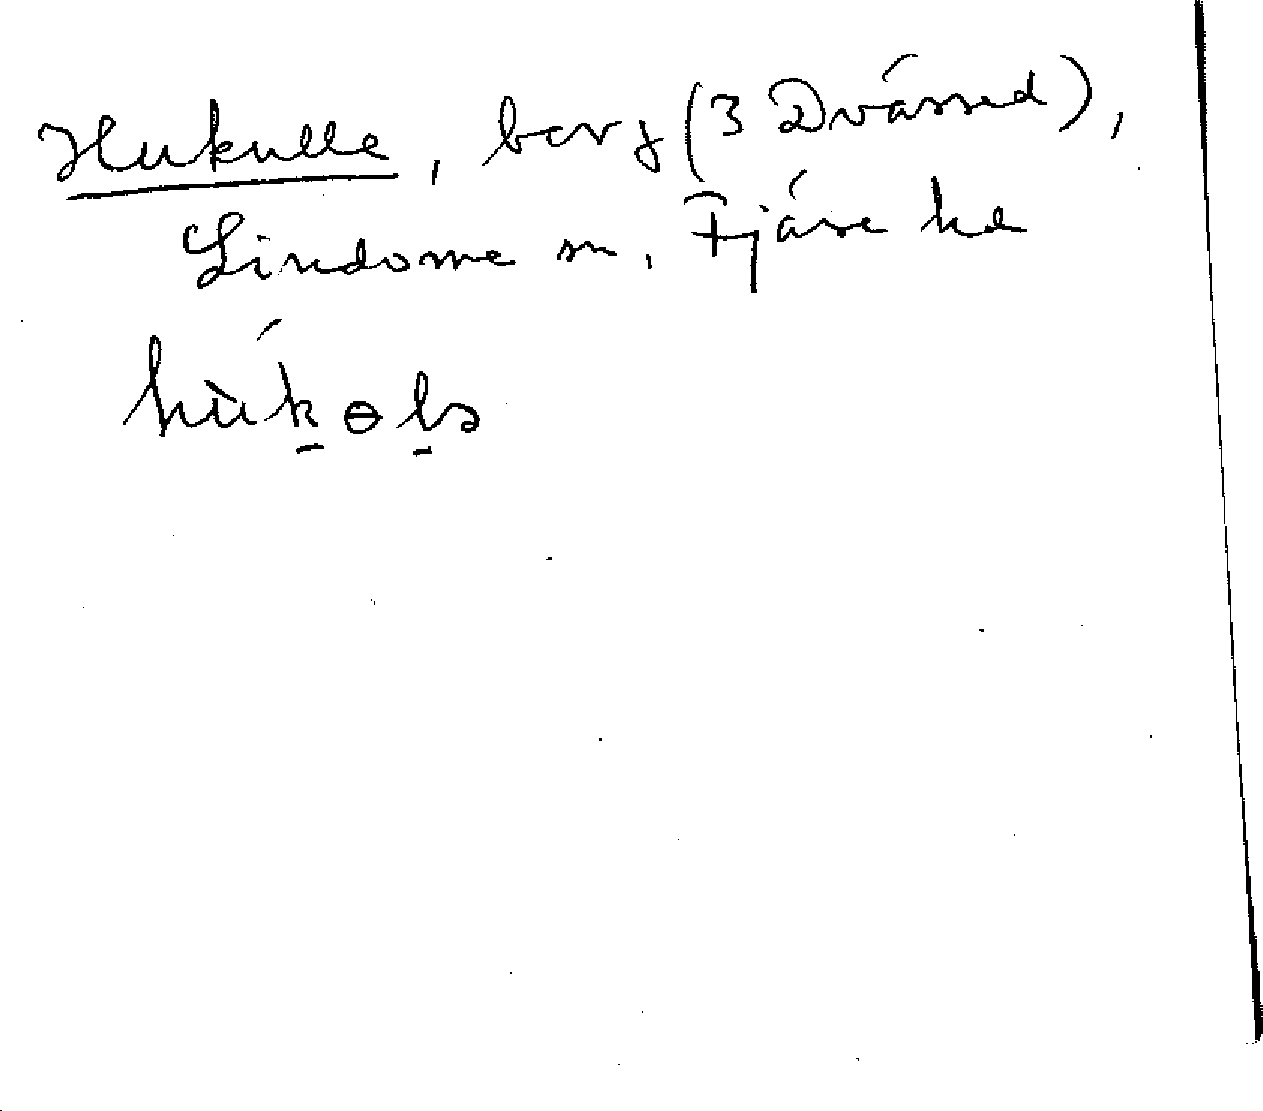 Hukulle, berg (3 Dvärred),
Lindome sn, Fjäre hd
hùk̠ɵl̠ə